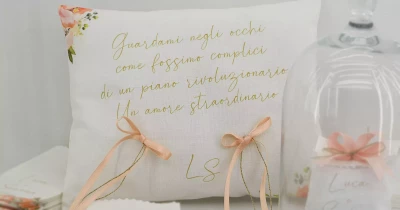 Guardami negli occhi
come fossimo complici
di un piano rivoluzionario
Un amore straordinario
LS
Luca